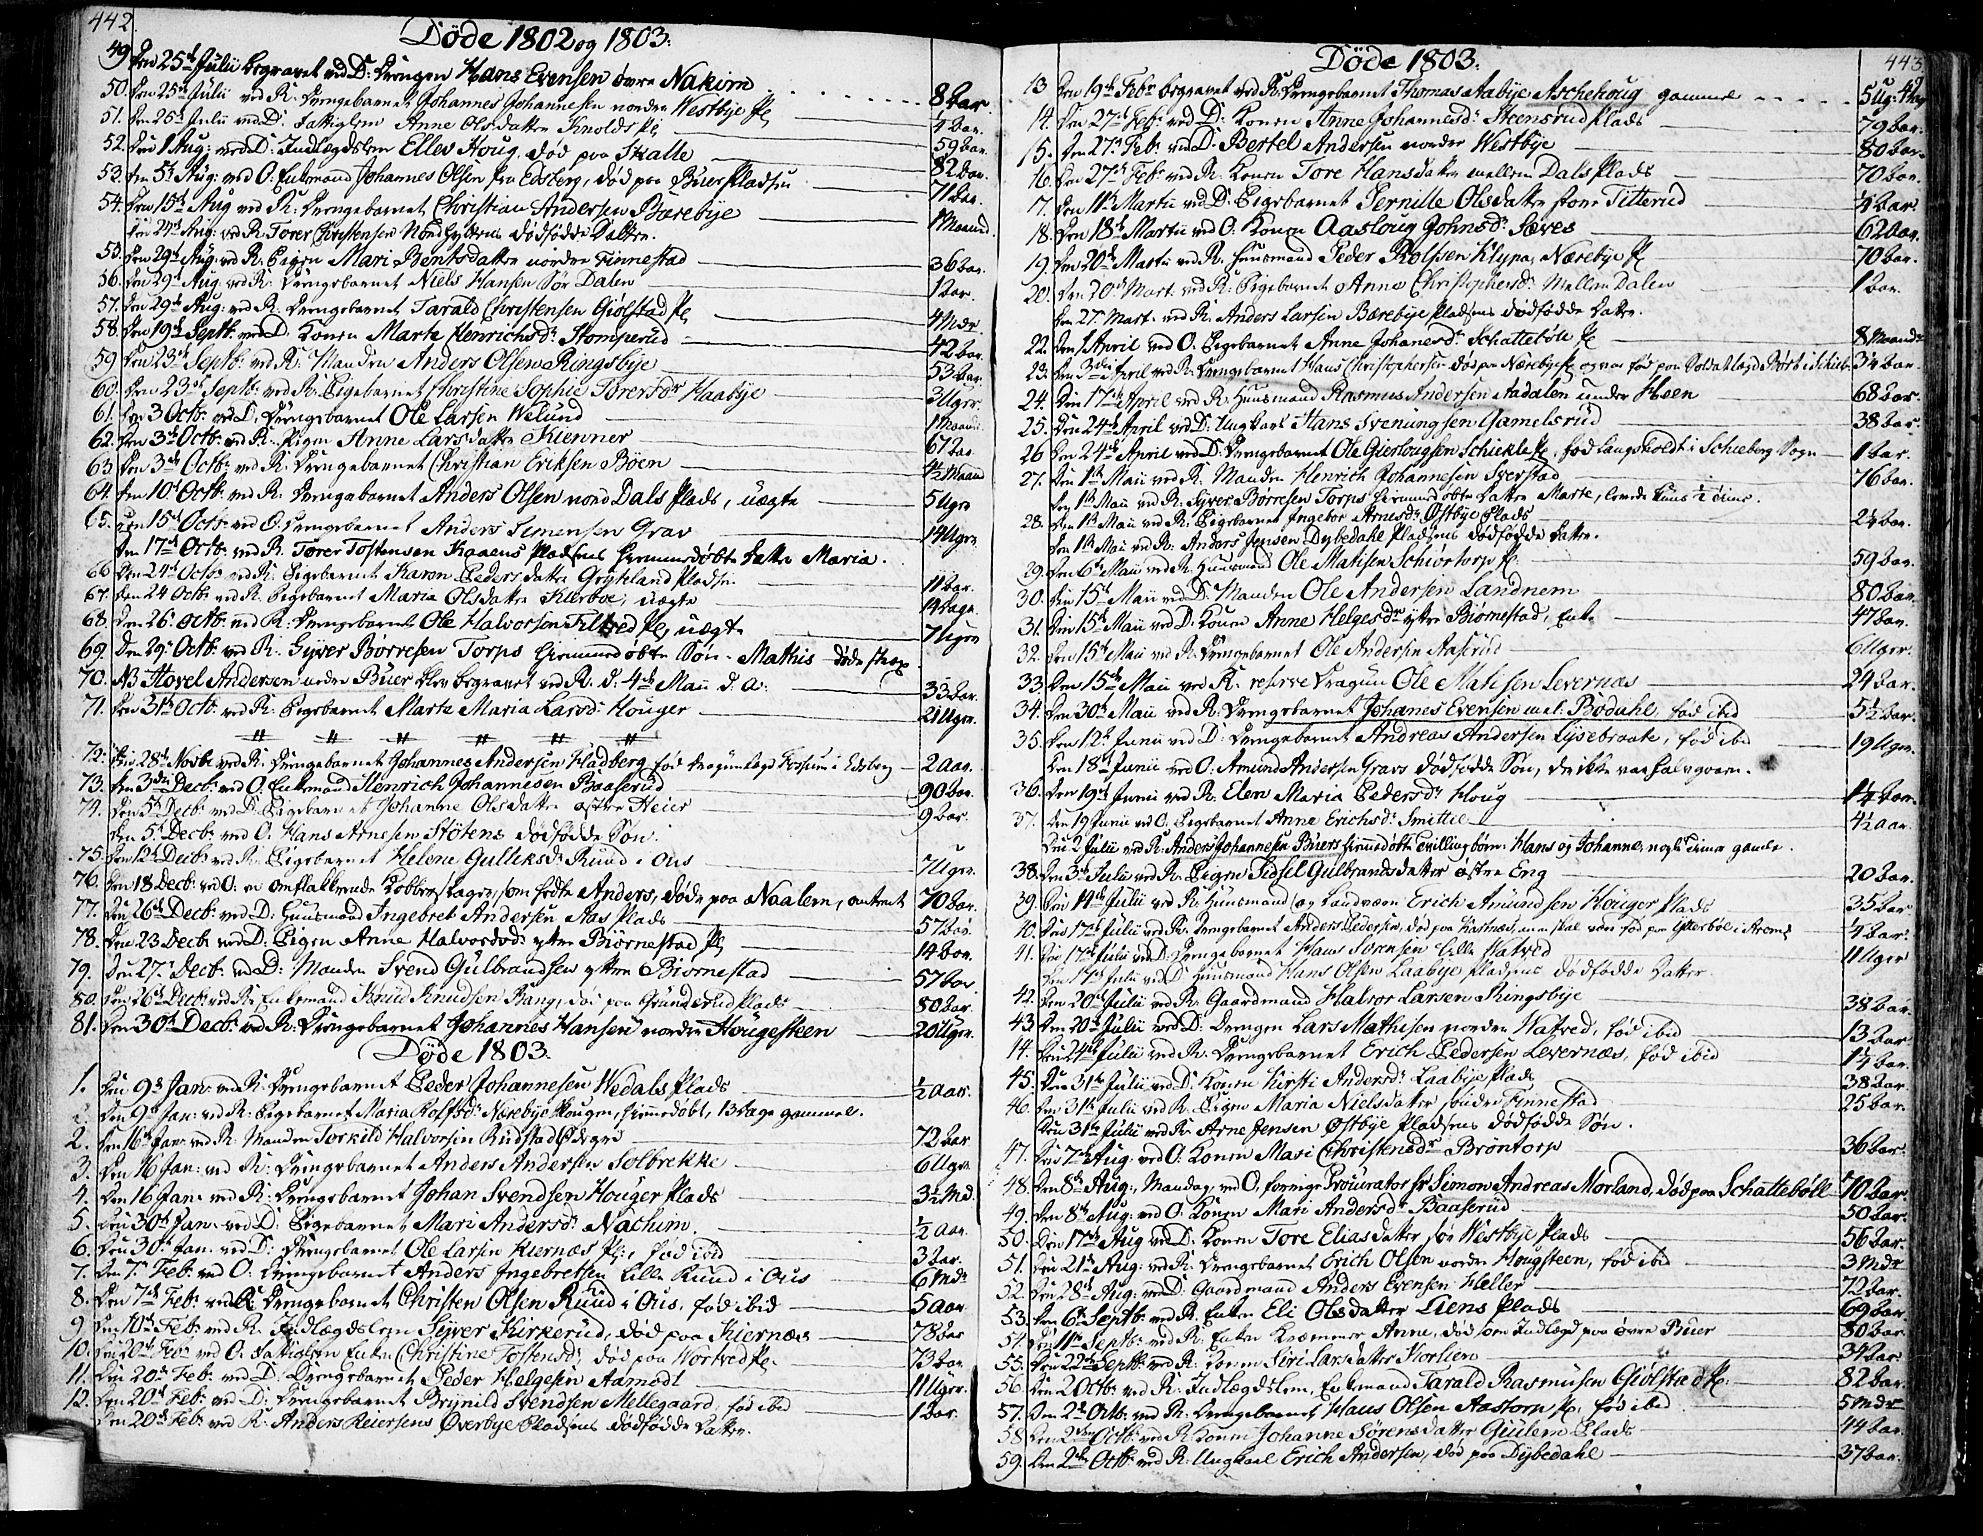 442.
Døde 1802 og 1803.
49. den 25d Julii begravet ved D: Drengen Hans Evensen øvre Nakim 8 Aar
50. Den 25d Julii ved R: Drengebarnet Johannes Johannesen nordre Westbye Pl. 1/4 Aar.
51. Den 25d Julii ved D: Fattiglem Anne Olsdatter Knolds Pl. 59 Aar.
52. den 1 Aug: ved D: Indlægdslem Elles Houg, død paa Skalle 82 Aar.
53. Den 5d Aug: ved O. Enkemand Johannes Olsen fra Edsberg, død paa Buer Pladsen 71 Aar.
54. Den 15d Aug ved R: Drengebarnet Christian Andersen Barebye 1 Maaned.
Den 29d Aug: ved R. Torer Christensens dødfødde Datter.
55. Den 29d Aug: ved R: Pigen Mari Bentsdatter nordre Finnestad 36 Aar.
56. Den 29d Aug. ved R: Drengebarnet Niels Hansen Sør Dalen 1 Aar.
57. Den 29d Aug: ved R: Drengebarnet Tarald Christensen Giølstad Pl. 4 Mdr.
58. Den 19d Septb: ved D. Konen Marte Henrichsdr Stomperud 42 Aar.
59. Den 23d Septb: ved R: Manden Anders Olsen Ringsbye 53 Aar.
60. Den 23d Septb: ved R: Pigebarnet Christine Sophie Torersdr Haabye Uger.
61. Den 3 Octb: ved D: Drengebarnet Ole Larsen Welund 1 Maaned.
62. Den 3d Octb: ved R. Pigen Anne Larsdatter Kienner 67 Aar
63. Den 3d Octb: ved R: Drengebarnet Christian Eriksen Böen 4 1/2 Maaned
64. Den 10d Octb: ved R: Drengebarnet Anders Olsen nord Dals Plads, uægte 5 Uger
65. Den 15d Octb: ved O. Drengebarnet Anders Simensen Grav 14 Uger
Den 17d Octb: ved R. Torer Tostensen Kaaens Pladsens hiemmedøbte Datter Maria.
66. Den 24d Octb: ved R: Pigebarnet Karen Pedersdatter Gryteland Pladsen 11 Aar.
67. Den 24 Octb: ved R: Pigebarnet Maria Olsdatter Kierboe, uægte 14 Dage.
68. Den 26. Octb: ved R: Drengebarnet Ole Halvorsen Tittered Pl, uægte 7 Uger
69. Den 29d Octb: ved R. Syver Børresen Torps hiemmedøbte Søn Mathis døde strax
70. NB Hovel Andersen nedre Buer blev begravet ved R. d. 4d Maii d. A. 33 Aar.
71. Den 31d Octb: ved R: Pigebarnet Marte Maria Larsd: Houger 21 Uger.
72. Den 28d Novbr ved R: Drengebarnet Johannes Andersen Fladberg, fød Dragunlagt Fossum i Edsberg 2 Aar.
73. Den 3die Decb: ved O. Enkemand Henrich Johannesen Baaserud 90 Aar.
74. Den 5d Decb: ved D. Pigebarnet Johanne Olsdatter østre Heier 9 Aar.
Den 5d Decb: ved O. Hans Arnesen Støtens dødfødde Søn.
75. Den 12d Decb: ved R: Pigebarnet Helene Gulliksdr Ruud i Ous 7 Uger.
76. Den 18 Decb: ved O: en omflakkende Kobberslager, som hedte Anders, døde paa Naalem, omtrent 70 Aar.
77. Den 26d Decb: ved D: Huusmand Ingebret Andersen Aas Plads 57 Aar.
78. Den 23 Decb: ved D: Pigen Anne Halvorsdr yttre Biørnestad Pl. 14 Aar.
79. Den 27d Decb: ved D: Manden Svend Gulbrandsen yttre Biørnestad 57 Aar.
80. Den 26d Decb: ved R: Enkemand Knud Knudsen Bang, død paa Grinderud Plads 80 Aar.
81. Den 30d Decb: ved R: Drengebarnet Johannes Hansen nordre Hougesteen 20 Uger.
Døde 1803.
1. Den 9d Jan: ved R: Drengebarnet Peder Johannesen Wedals Plads 1/2 Aar.
Den 9d Jan: ved R: Pigebarnet Maria Rolfsdr Nærebye Hougen, hiemmedøbt, 13 Dage gammel.
2. Den 16d Jan: ved R: Manden Torkild Halvorsen Rudstad 72 Aar
3. Den 16 Jan: ved R: Drengebarnet Anders Andersen Solbrekke 6 Uger
4. Den 16 Jan: ved R: Drengebarnet Johan Svendsen Houger Plads 3 1/2 Md.
5. Den 30d Jan: ved D: Pigebarnet Mari Andersdr Nachum 1/2 Aar.
6. Den 30d Jan. ved D: Drengebarnet Ole Larsen Kiernæs Pl., fød ibid 3 Aar.
7. Den 7d Feb: ved O: Drengebarnet Anders Ingebretsen lille Ruud i Ous 6 Mdr
8. Den 7d Feb: ved R: Drengebarnet Christen Olsen Ruud i Ous, fød ibid 5 Aar
9. Den 10d Feb: ved R. Indlægdslem Syver Kirkerud, død paa Kiernæs 78 Aar
10. Den 20d Feb: ved O. Fattiglem Enke Christine Tostensdr død paa Wortved Pl. 73 Aar.
11. Den 20d Feb: ved D: Drengebarnet Peder Helgesen Aamodt 11 Uger.
12. Den 20d Feb: ved D: Drengebarnet Brynild Svendsen Mellegaard, fød ibid 1 Aar.
Den 20d Feb: ved R: Anders Reiersens Øverbye Pladsens dødfødde Datter.
443
Døde 1803.
13. Den 19d Febr begravet ved R: Drengebarnet Thomas Aabye Aschehoug gammel 5 Ug: 4 Dag
14. Den 27d Feb: ved D: Konen Anne Johannesdr Steensrud Plads 79 Aar.
15. Den 27d Feb: ved D: Bertel Andersen nordre Westbye 80 Aar.
16. Den 27d Feb: ved R: Konen Tore Hansdatter mellem Dals Plads 70 Aar.
17. Den 11d Martii ved D: Pigebarnet Pernille Olsdatter store Titterud 1/4 Aar.
18. Den 18d Martii ved O. Konen Aasloug Johnsdr Sæves 62 Aar.
19. Den 20d Martii ved R. Huusmand Peder Rolfsen Klypa, Nærebye Pl 70 Aar.
20. Den 20d Mart: ved R: Pigebarnet Anne Christophersdr Mellem Dalen 1 Aar.
Den 27. Mart. ved R: Anders Larsen Bærebye Pladsens dødfødde Datter.
22. Den 1 April ved O. Pigebarnet Anne Johanesdr Schattebøle Pl 8 Maander
23. Den 3die April ved R: Drengebarnet Hans Christophersen død paa Nærebye Pl og var fød paa Soldatlagde i Schieberg 3 1/4 Aar.
24. Den 17d April ved R: Huusmand Rasmus Andersen Aadalen under Hoen 68 Aar.
25. Den 24d April ved D: Ungkarl Hans Svenungsen Gamelsrud 38 Aar.
26. Den 24d April ved D: Drengebarnet Ole Gierlougsen Schiekle Pl, fød Langsholdt i Schieberg Sogn 1 Aar.
27. Den 1d Maii ved R: Manden Henrich Johannesen Sverstad 76 Aar.
Den 1d Maii ved R. Syver Børresen Torps hiemmedøbte Datter Marte, levede kuns 1/2 Time.
28. Den 1d Maii ved R: Pigebarnet Ingebor Arnesdr Østbye Plads 2 1/4 Aar.
Den 1d Maii ved R: Anders Jensen Dybedahl Pladsens dødfødde Datter.
29. Den 6d Maii ved R: Huusmand Ole Matisen Schiørtorp Pl. 59 Aar.
30. Den 15d Maii ved D: Manden Ole Andersen Landnem 80 Aar.
31. Den 15d Maii ved D: Konen Anne Helgesdr yttre Biørnestad, Enke 47 Aar.
32. Den 15d Maii ved R: Drengebarnet Ole Andersen Aaserud 6 Uger.
33. Den 15d Maii ved R. reserve Dragun Ole Matisen Levernæs 24 Aar.
34. Den 30d Maii ved R: Drengebarnet Johanes Evensen mel: Bødahl, fød ibid 5 1/2 Aar.
35. Den 12d Junii ved D: Drengebarnet Andreas Andersen Lysebraate, fød ibid 19 Uger.
Den 18d Junii ved O: Amund Andersen Gravs dødfødde Søn, der ikke var halvgaaen.
36. Den 19d Junii ved R. Elen Maria Pedersdr Houg 1 1/4 Aar.
37. Den 19 Junii ved O. Pigebarnet Anne Erichsdr Smittil 4 1/2 Aar.
Den 2 Julii ved R: Anders Johannesen Buers hiemmedøbte Tvillingbörn Hans og Johanne, nogle Timer gamle.
38. Den 3d Julii ved R. Pigen Sidsel Gulbrandsdatter østre Eng 20 Aar.
39. Den 14d Julii ved R: Huusmand og Landværn Erich Amundsen Houger Plads 35 Aar
40. Den 17d Julii ved R: Drengebarnet Anders Pedersen, død paa Kastnæs, men skal være fød paa Ytterbøe i Aremark 1/4 Aar.
41. Den 17d Julii ved D: Drengebarnet Hans Sørensen lille Natved 11 Uger
Den 17d Julii ved D: Huusmand Hans Olsen Laabye Pladsens dødfødde Datter.
42. Den 20d Julii ved R: Gaardmand Halvor Larsen Ringsbye 38 Aar.
43. Den 20d Julii ved D: Drengen Lars Mathisen nordre Natved, fød ibid 13 Aar.
44. Den 24d Julii ved R: Drengebarnet Erich Pedersen Levernæs, fød ibid 1 1/4 Aar.
45. Den 31d Julii ved D: Konen Kirsti Andersdr Laabye Plads 38 Aar.
46. Den 31d Julii ved R. Pigen Maria Nielsdatter søndre Finnestad 25 Aar.
Den 31d Julii ved R: Arne Jensen Østbye Pladsens dødfødde Søn.
47. Den 7d Aug: ved O. Konen Mari Christensdr Brøntorp 36 Aar.
48. Den 8d Aug:, Mandag, ved O, forrige Prourator Hr Simon Andreas Mørland, død paa Schattebøll 70 Aar.
49. Den 8d Aug: ved O. Konen Mari Andersdr Baaserud 50 Aar.
50. Den 17d Aug ved D: Konen Tore Eliasdatter sør Westbye Plads 56 Aar.
51. Den 21d Aug: ved R: Drengebarnet Erich Olsen nordre Hougsteen, fød ibid 3 Mdr
52. Den 28d Aug: ved D: Gaardmand Anders Evensen Heller 72 Aar.
53. Den 6d Septb: ved R. Enken Eli Olsdatter Liens Plads 69 Aar.
54. Den 11d Septb: ved R: Enken Anne, død som Indlægd paa øvre Buer 80 Aar.
55. Den 22d Septb: ved R: Konen Siri Larsdatter Morlien 34 Aar.
56. Den 2 Octb: ved R: Indlægdslem, Enkemand Tarald Rasmusen Giølstad Pl. 82 Aar.
57. Den 2d Octb: ved R: Drengebarnet Hans Olsen Aastorp Pl, fød ibid 5 Mdr
58. Den 2den Octb: ved R: Konen Johanne Sørensdatter Guulem Plads 44 Aar.
59. Den 2d Octb: ved R: Ungkarl Erich Andersen, død paa Dybedahl 37 Aar.